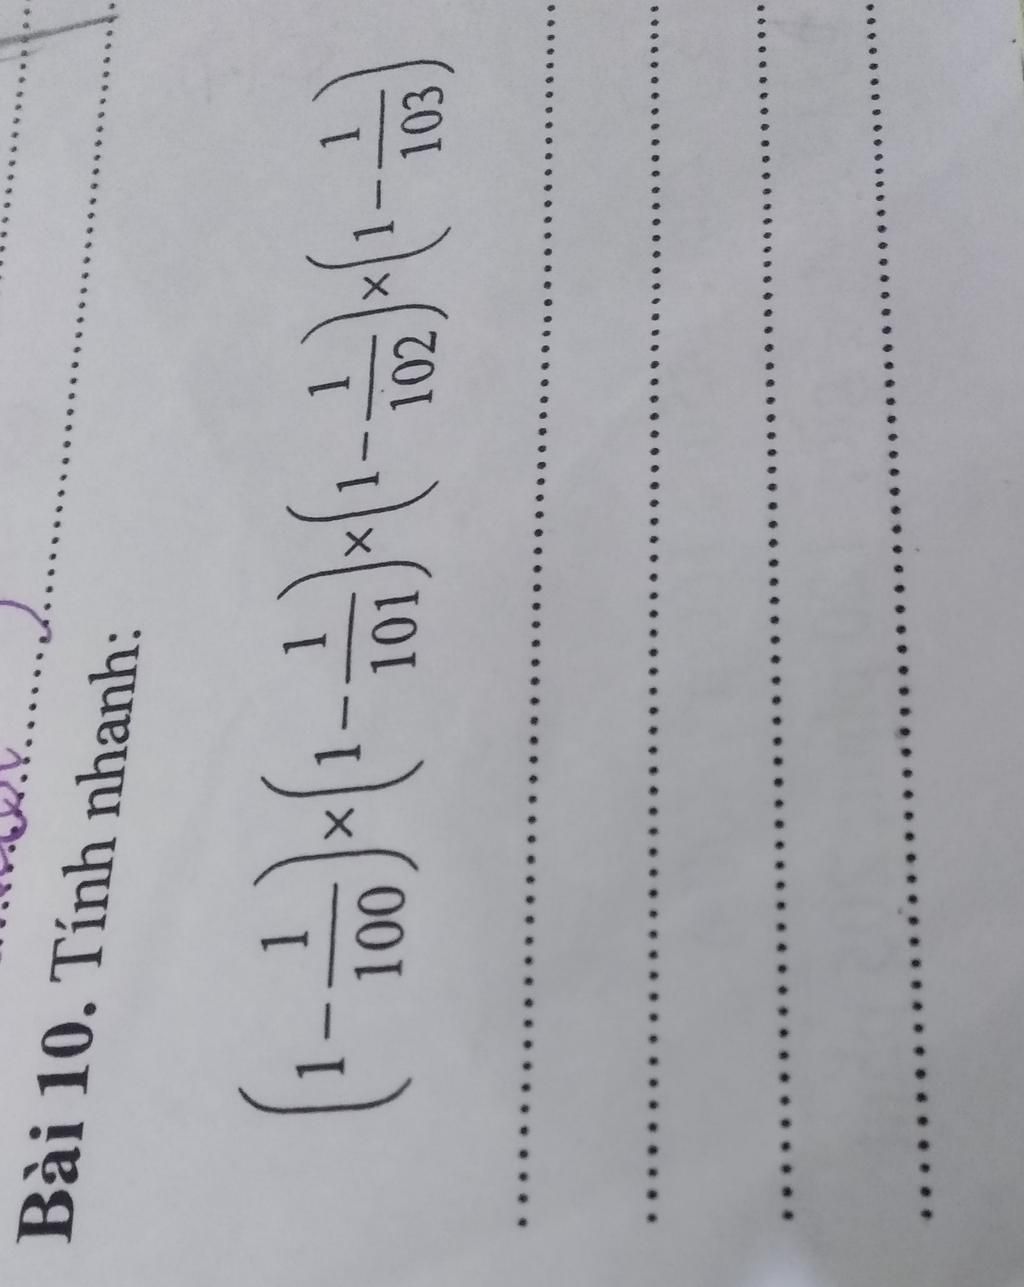 Bài 10. Tính nhanh:
(1 - 1/100) × (1 - 1/101) × (1 - 1/102) × (1 - 1/103)